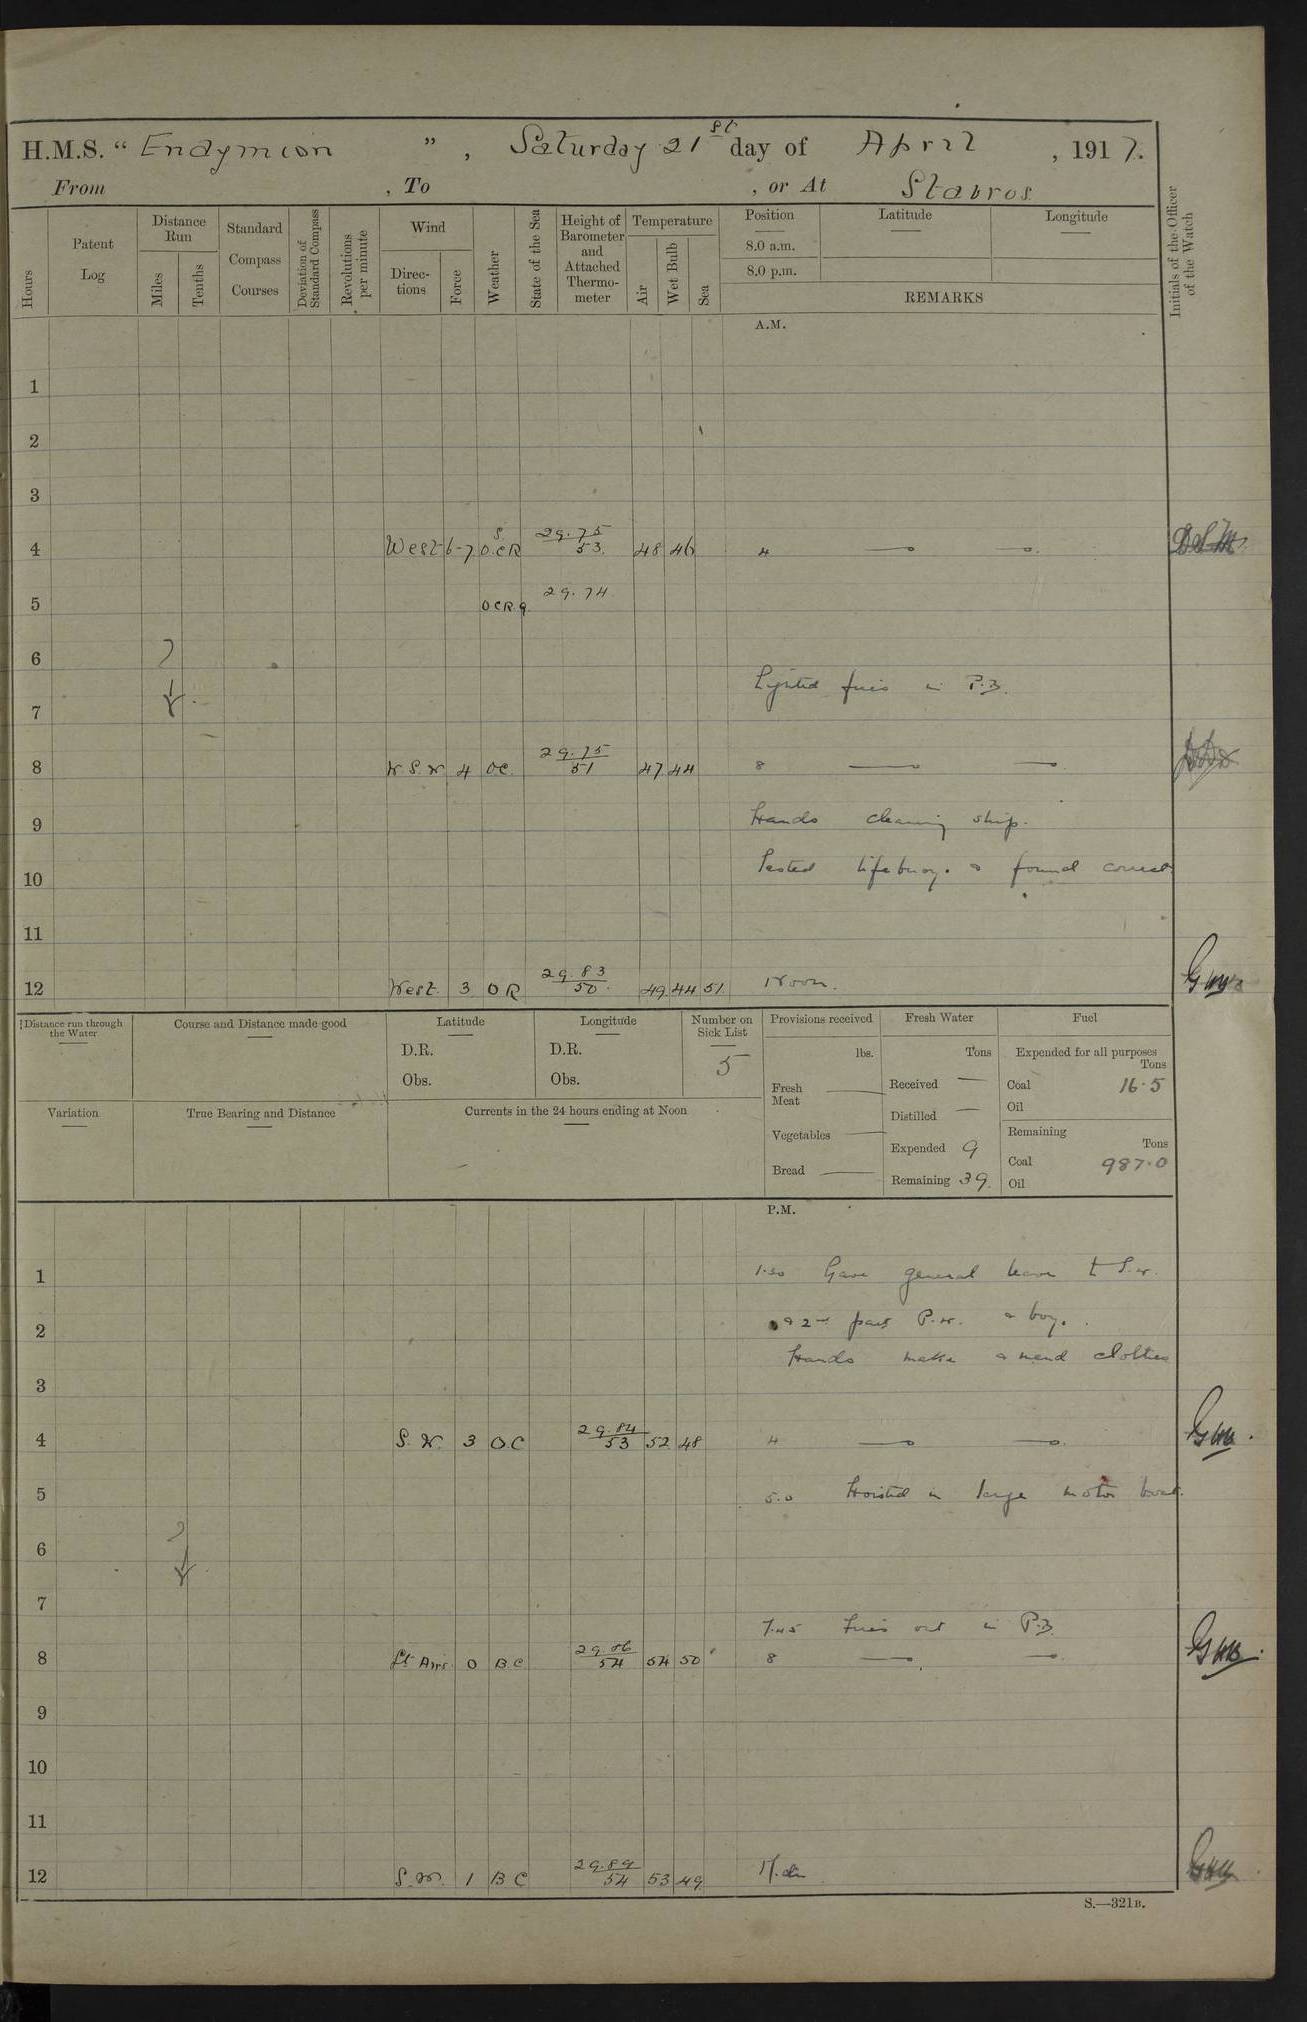 H.M.S. “ Endymion ”, Saturday 21st day of April , 1917.
From , To , or At Stavros.
Hours
Patent Log
Distance Run
Miles
Tenths
Standard Compass Courses
Deviation of Standard Compass
Revolutions per minute
Wind
Directions
Force
Weather
State of the Sea
Height of Barometer and Attached Thermometer
Temperature
Air
Wet Bulb
Sea
Position
8.0 a.m.
8.0 p.m.
Latitude
Longitude
REMARKS
Initials of the Officer of the Watch
A.M.
1
2
3
4 West 6-7 O.C.R 29.75 53. 48 46 4
5 OCR.q 29.74
6
Lighted fires in P.B.
7
8 W S.W 4 OC. 29.75 51 47 44 8
9 Hands cleaning ship.
10 Tested lifebuoys & found correct
11
12 West. 3 O R 29.83 50. 49 44 51. Noon.
Distance run through the Water
Course and Distance made good
Latitude
D.R.
Obs.
Longitude
D.R.
Obs.
Number on Sick List
5
Provisions received
lbs.
Fresh Meat
Vegetables
Bread
Fresh Water
Tons
Received
Distilled
Expended 9
Remaining 39.
Fuel
Expended for all purposes
Tons
Coal 16.5
Oil
Remaining
Tons
Coal 987.0
Oil
Variation
True Bearing and Distance
Currents in the 24 hours ending at Noon
P.M.
1 1.30 Gave general leave to S.W.
2 & 2nd part P.W. & boys.
Hands make & mend clothes
3
4 S.W. 3 O.C 29.84 53 52 48 4
5 5.0 Hoisted in large motor boat.
6
7
7.45 Fires out in P.B.
8 Lt Airs. 0 B.C 29.86 54 54 50 8
9
10
11
12 S.W. 1 B C 29.89 54 53 49
S.—321B.